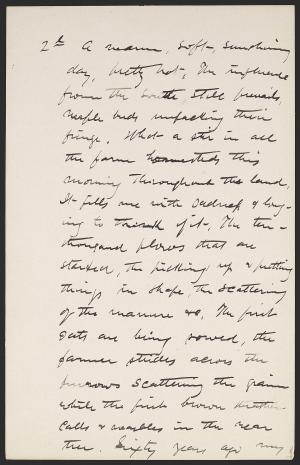 2d A warm, soft, smothering
day, pretty hot. The influence
from the South still prevails,
maple buds unpacking their
fringe. What a stir in all
the farm homesteads this
morning throughout the land,
It fills me with sadness & long-
ing to think of it. The ten-
thousand plows that are
started, the picking up & putting
things in shape, the scattering
of the manure &c. The first
oats are being sowed, the
farmer strides across the
furrows scattering the grain
while the first brown thrasher
calls & warbles in the near
tree. Sixty years ago my